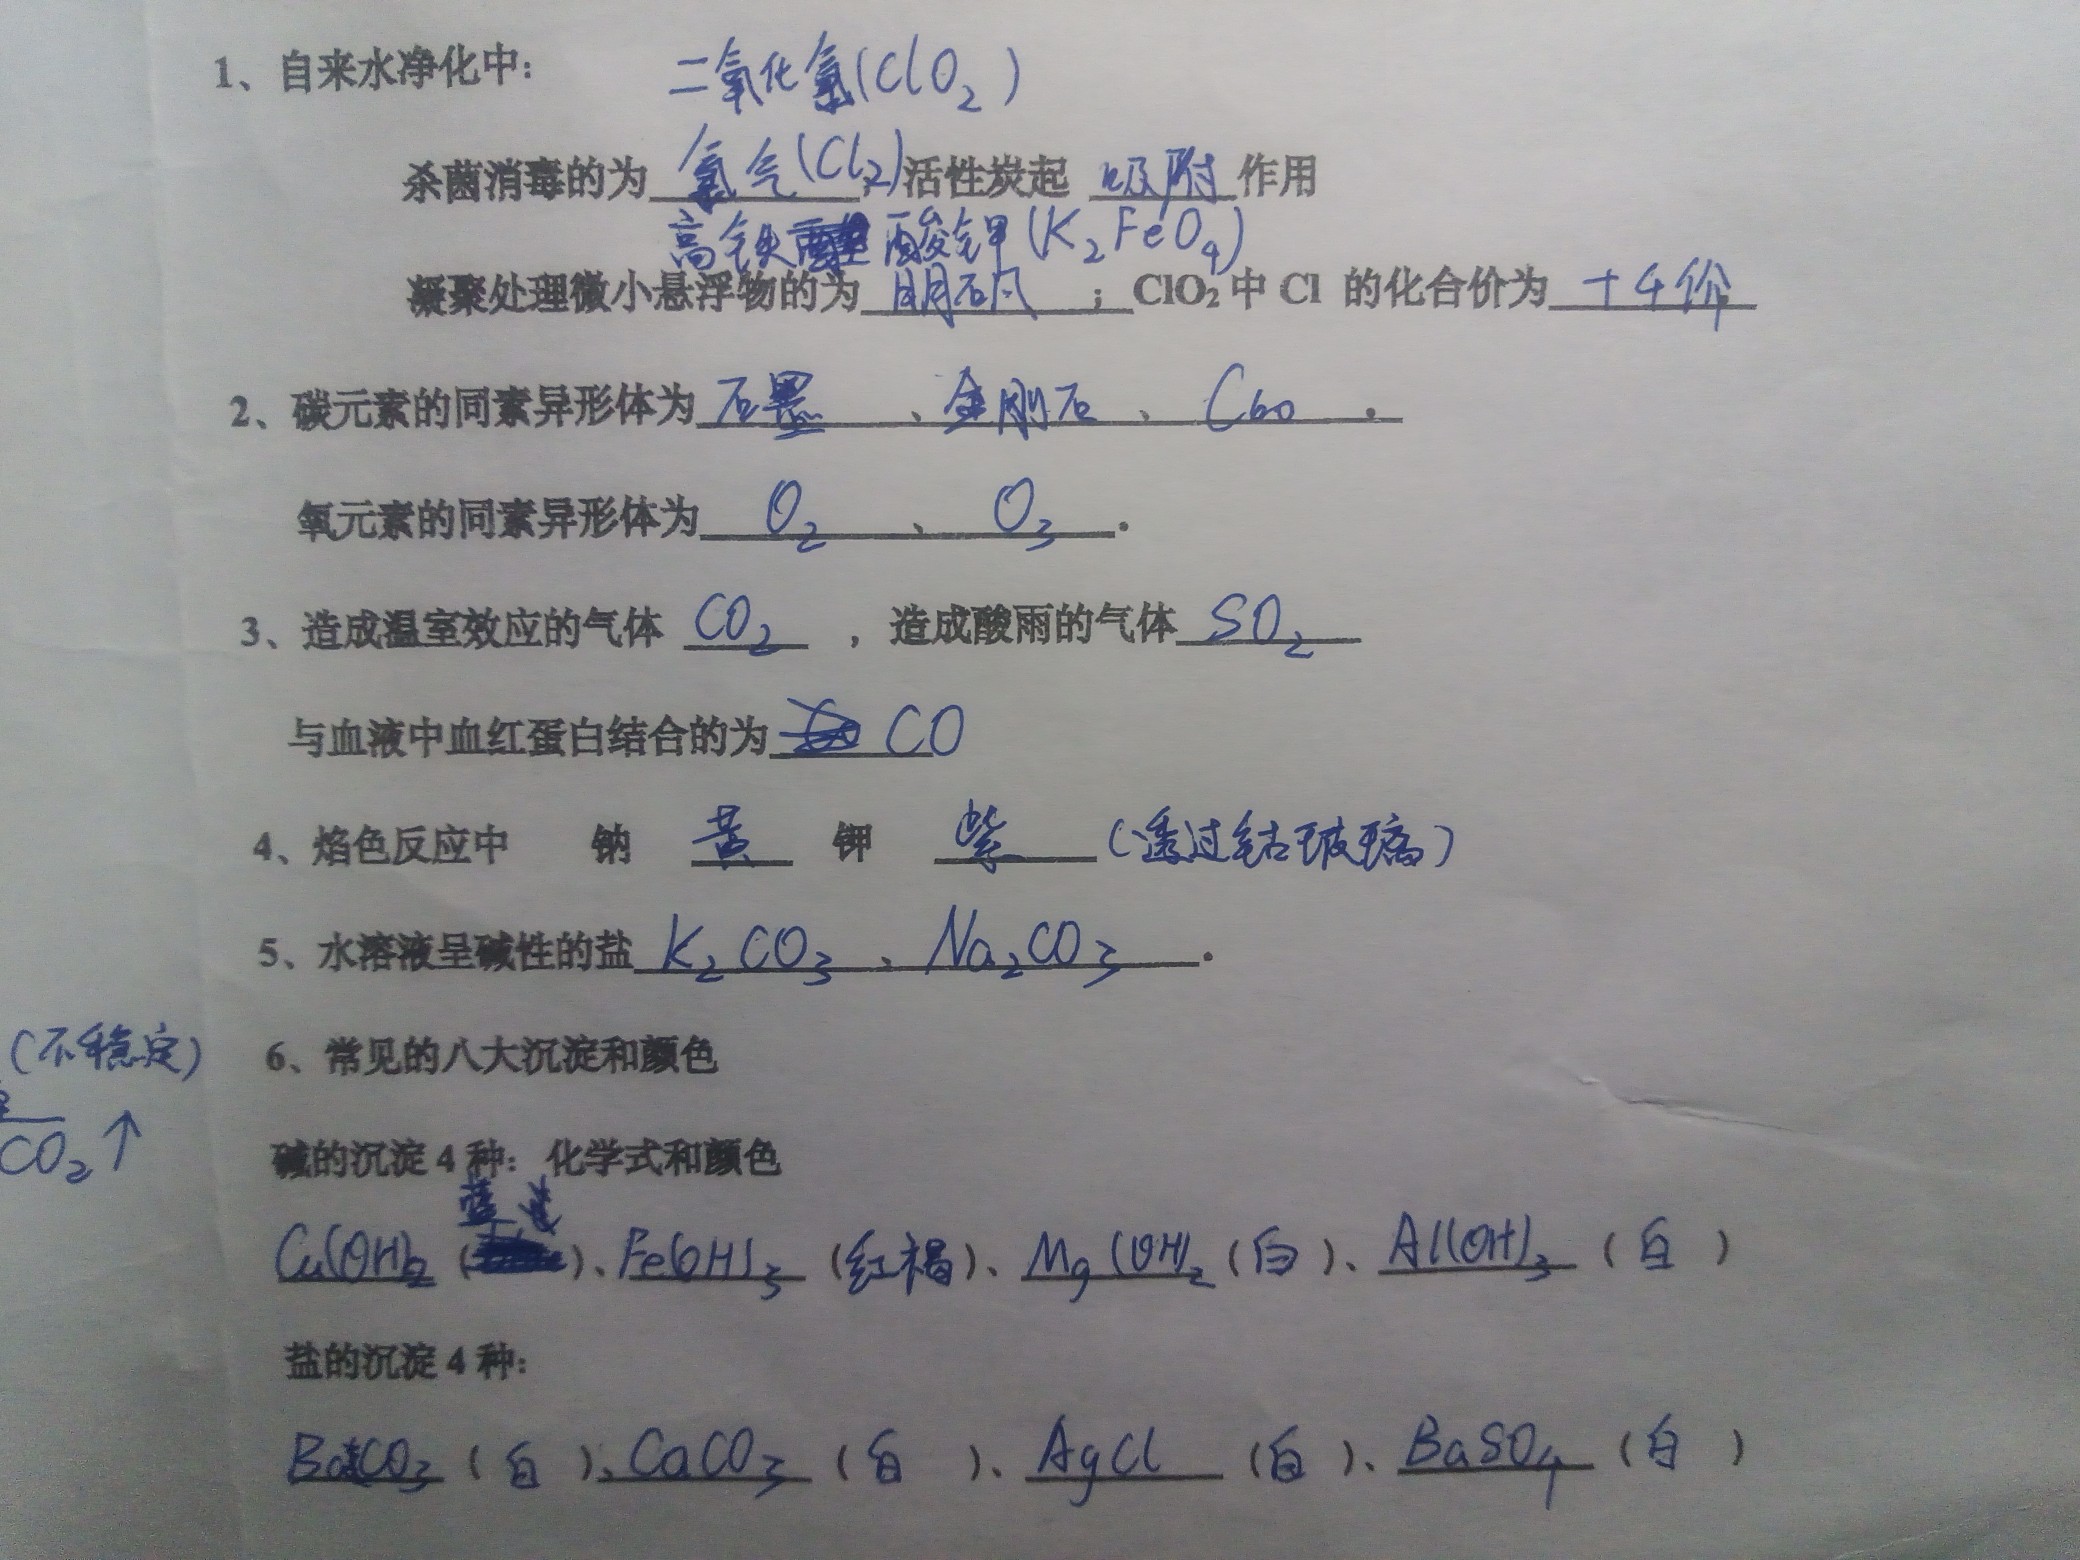 1、自来水净化中： 二氧化氯(ClO₂)
杀菌消毒的为 氯气(Cl₂) 活性炭起 吸附 作用
高铁酸钾(K₂FeO₄)
凝聚处理微小悬浮物的为 明矾 ；ClO₂中Cl 的化合价为 +4价
2、碳元素的同素异形体为 石墨 、 金刚石 、 C60 .
氧元素的同素异形体为 O₂ 、 O₃ .
3、造成温室效应的气体 CO₂ ，造成酸雨的气体 SO₂
与血液中血红蛋白结合的为 CO
4、焰色反应中 钠 黄 钾 紫 (透过钴玻璃)
5、水溶液呈碱性的盐 K₂CO₃ 、 Na₂CO₃ .
(不稳定)
6、常见的八大沉淀和颜色
CO₂↑
碱的沉淀4种：化学式和颜色
蓝
Cu(OH)₂ ( )、Fe(OH)₃ (红褐)、Mg(OH)₂ (白)、Al(OH)₃ (白)
盐的沉淀4种：
BaCO₃ (白)、CaCO₃ (白)、AgCl (白)、BaSO₄ (白)